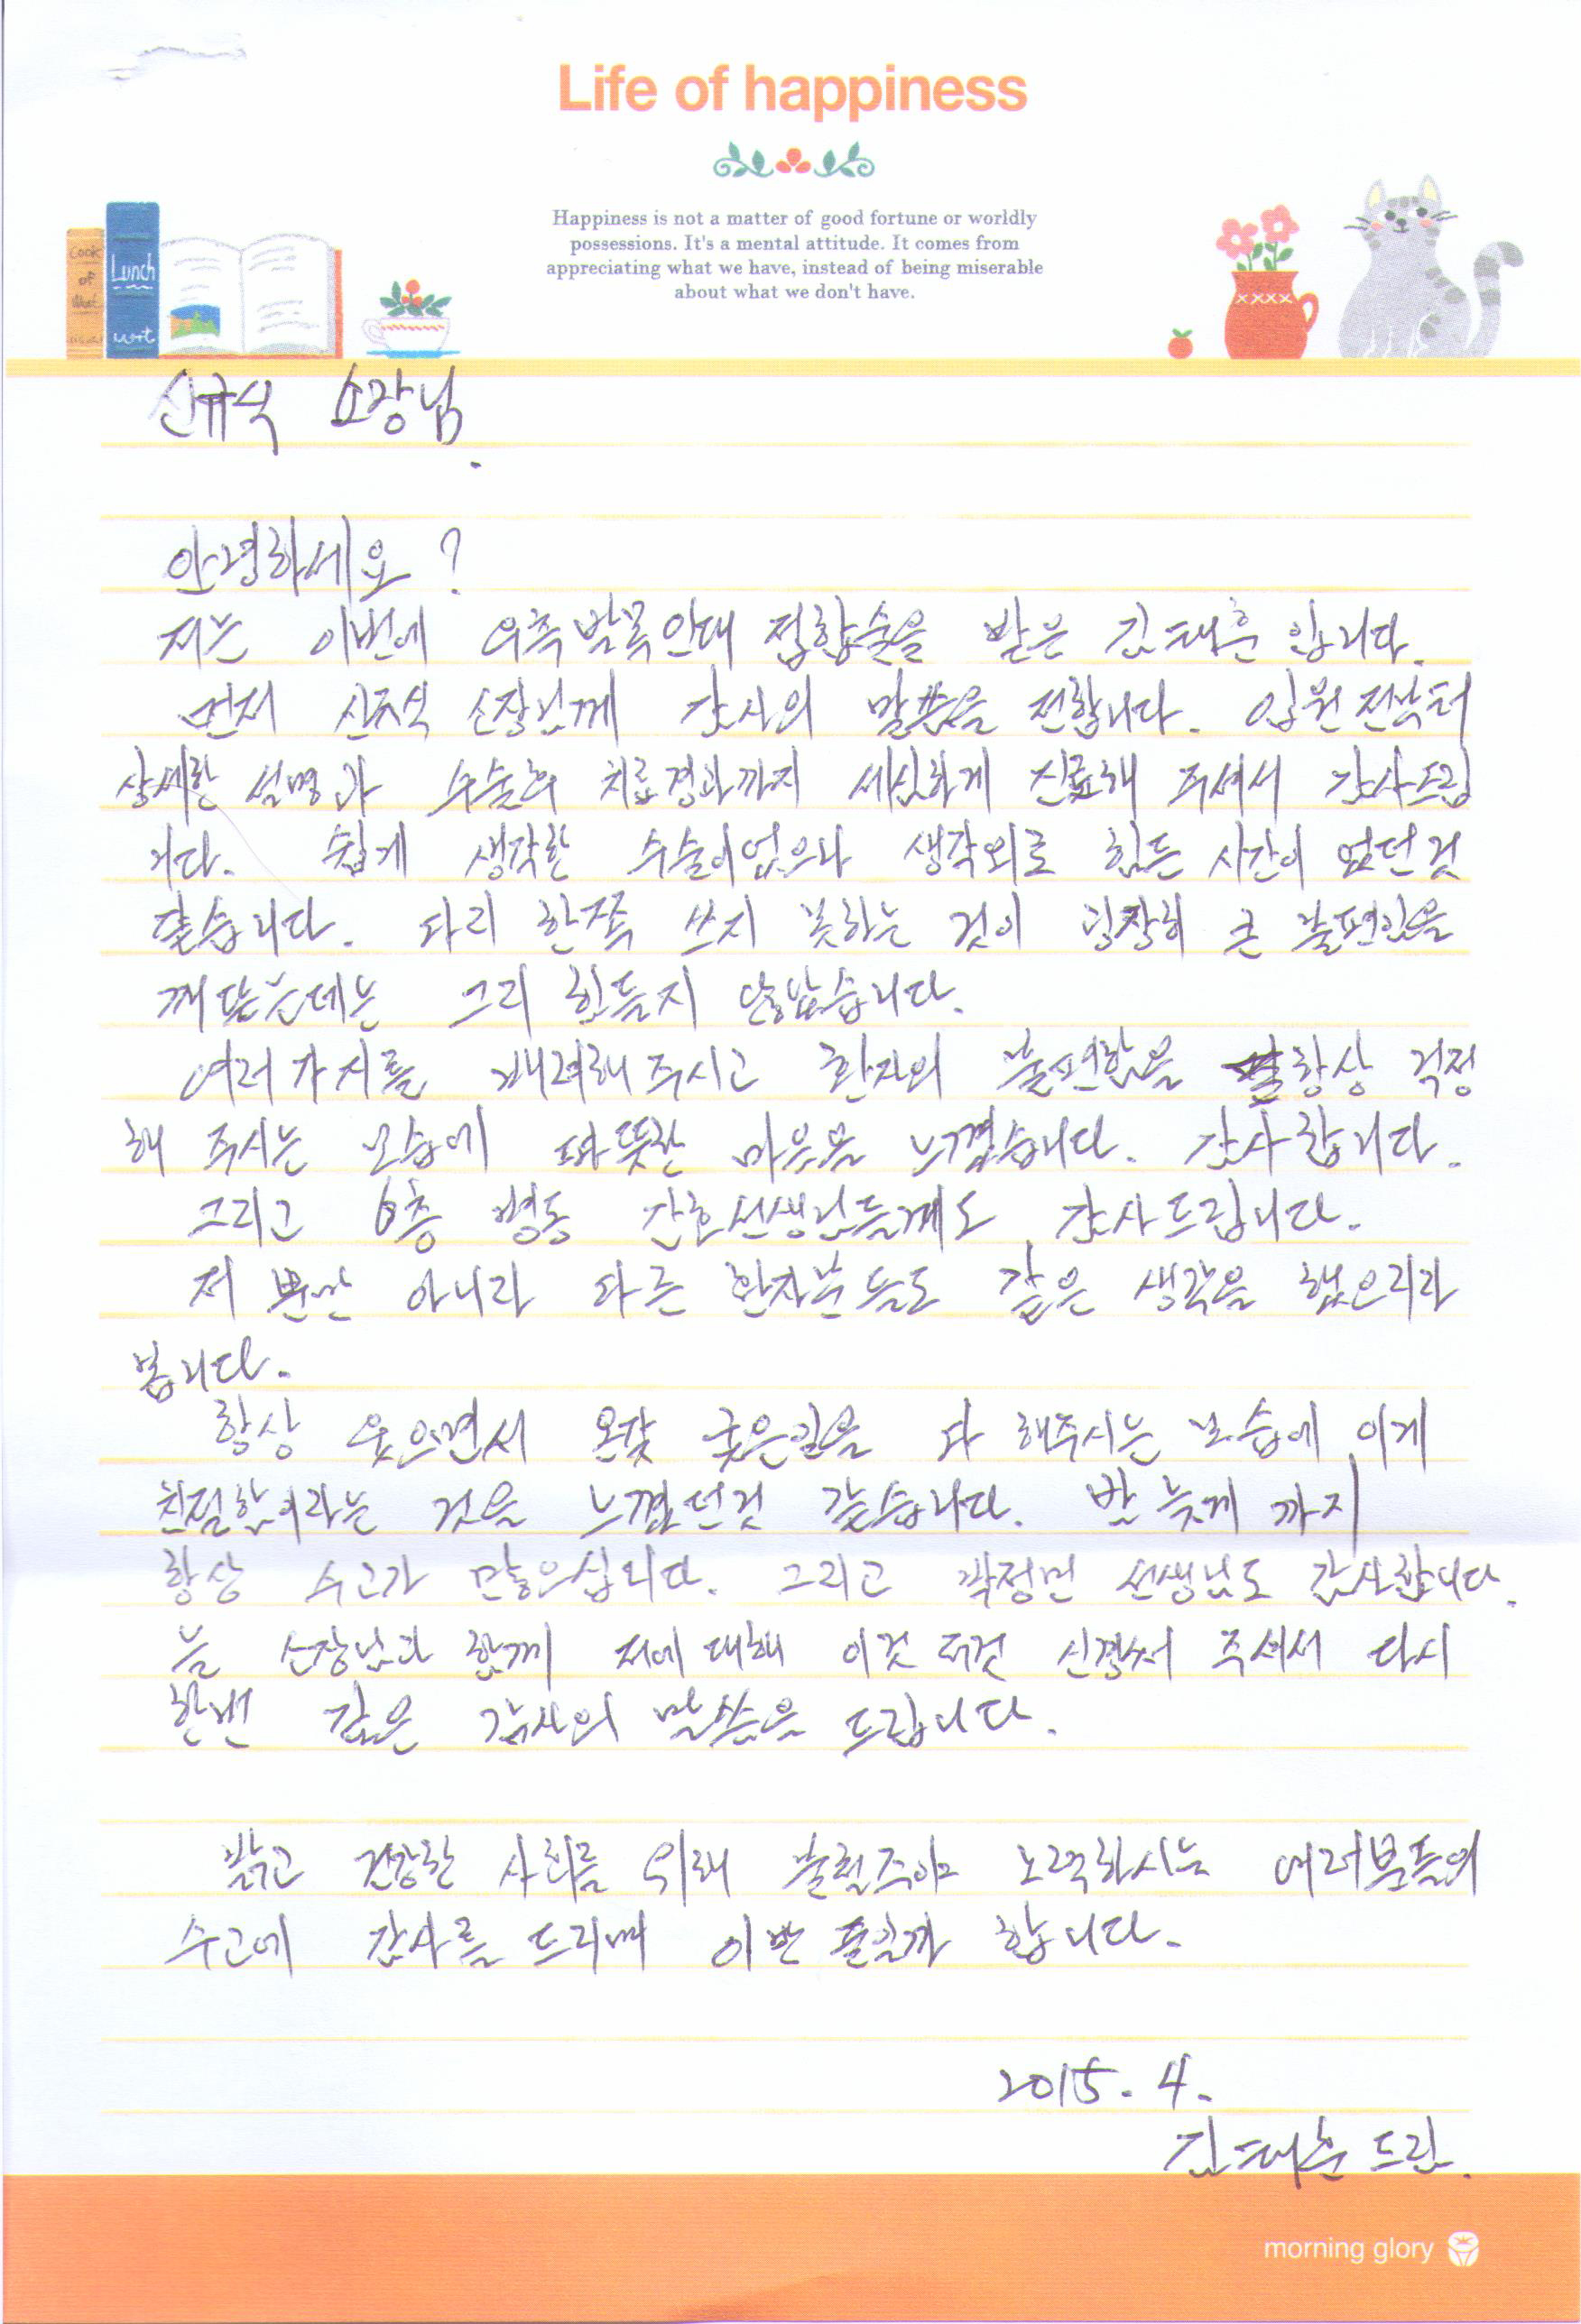 Life of happiness
Happiness is not a matter of good fortune or worldly
possessions. It's a mental attitude. It comes from
appreciating what we have, instead of being miserable
about what we don't have.
Cook
of
Lunch
신규식 소장님.
안녕하세요?
저는 이번에 우측발목인대 접합술을 받은 김태훈입니다.
먼저 신규식 소장님께 감사의 말씀을 전합니다. 입원전부터
상세한 설명과 수술후 치료경과까지 세심하게 진료해 주셔서 감사드립
니다. 쉽게 생각한 수술이었으나 생각외로 힘든 시간이 었던것
같습니다. 다리 한쪽 쓰지 못하는 것이 굉장히 큰 불편임을
깨닫는데는 그리 힘들지 않았습니다.
여러가지를 배려해주시고 환자의 불편함을 항상 걱정
해 주시는 모습에 따뜻한 마음을 느꼈습니다. 감사합니다.
그리고 6층 병동 간호선생님들께도 감사드립니다.
저 뿐만 아니라 다른 환자분들도 같은 생각을 했으리라
봅니다.
항상 웃으면서 온갖 궂은일을 다 해주시는 모습에 이게
친절함이라는 것을 느꼈던것 같습니다. 밤 늦게 까지
항상 수고가 많으십니다. 그리고 곽정민 선생님도 감사합니다.
늘 소장님과 함께 저에 대해 이것 저것 신경써 주셔서 다시
한번 깊은 감사의 말씀을 드립니다.
밝고 건강한 사회를 위해 불철주야 노력하시는 여러분들의
수고에 감사를 드리며 이만 줄일까 합니다.
2015. 4.
김태훈 드림.
morning glory